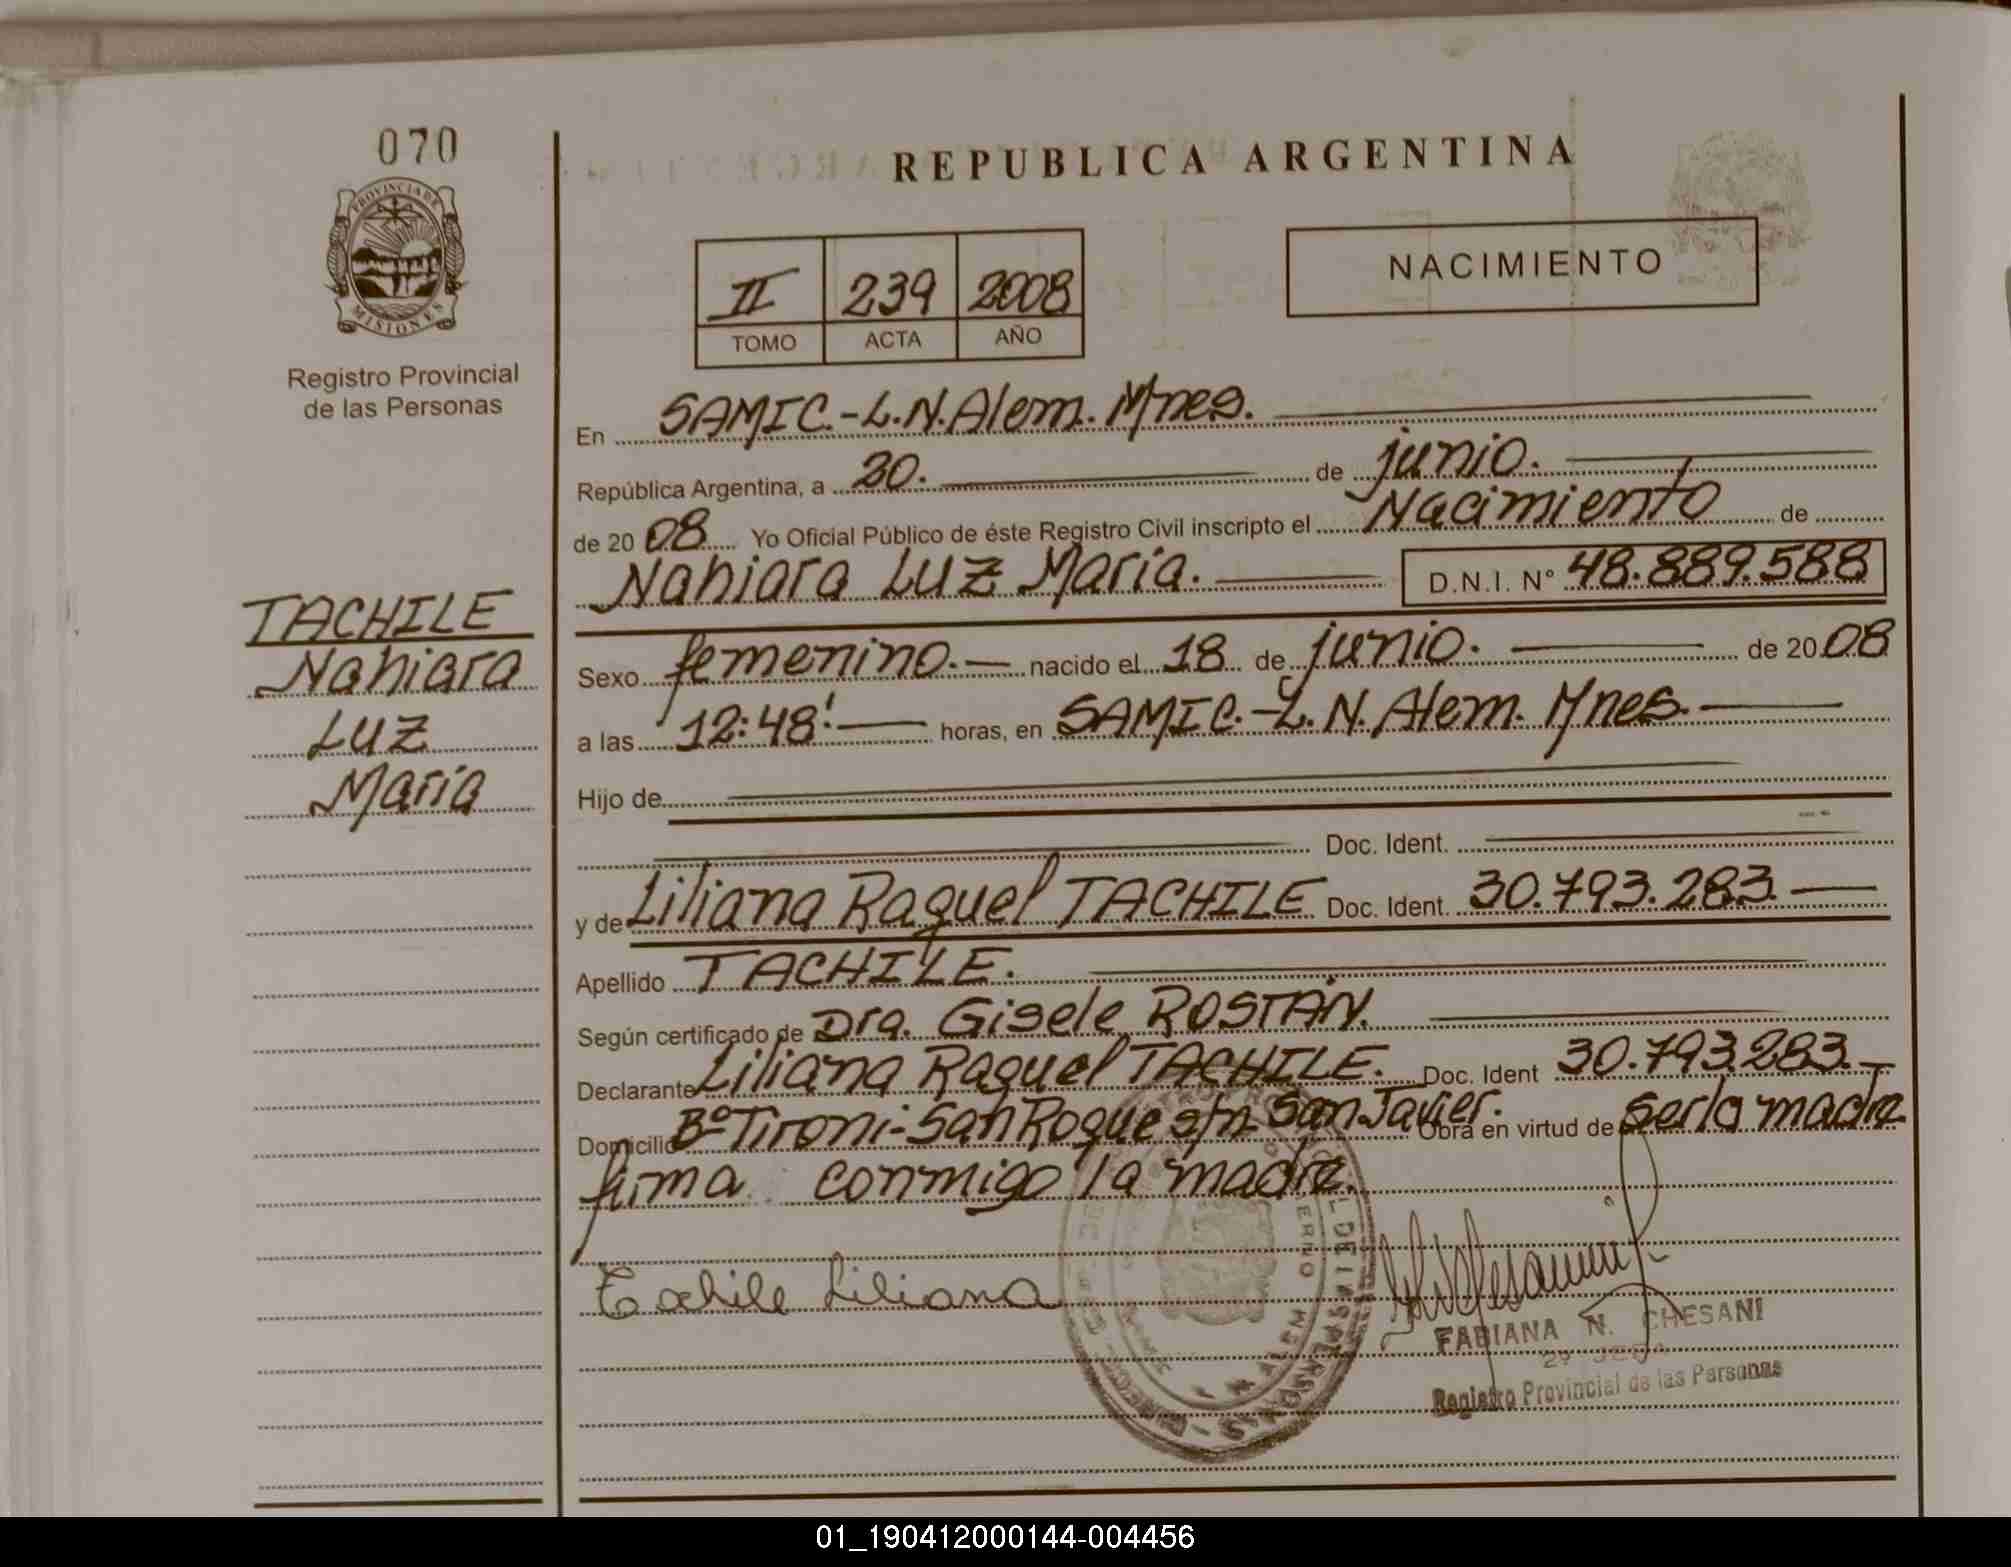 070
PROVINCIA DE
MISIONES
Registro Provincial
de las Personas
TACHILE
Nahiara
Luz
María
REPUBLICA ARGENTINA
II 239 2008
TOMO ACTA AÑO
NACIMIENTO
En SAMIC.-L.N.Alem. Mnes.
República Argentina, a 30. de junio.
de 2008 Yo Oficial Público de éste Registro Civil inscripto el Nacimiento de
Nahiara Luz María. D.N.I. N° 48.889.588
Sexo femenino.- nacido el 18 de junio. de 2008
a las 12:48' horas, en SAMIC.-L.N. Alem. Mnes.
Hijo de
Doc. Ident.
y de Liliana Raquel TACHILE Doc. Ident. 30.793.283
Apellido TACHILE.
Según certificado de Dra. Gisele ROSTÁN.
Declarante Liliana Raquel TACHILE. Doc. Ident 30.793.283.-
Domicilio Bº Tironi-San Roque s/n San Javier. Obra en virtud de ser la madre
firma conmigo la madre.
Tachile Liliana
FABIANA N. CHESANI
Registro Provincial de las Personas
01_190412000144-004456